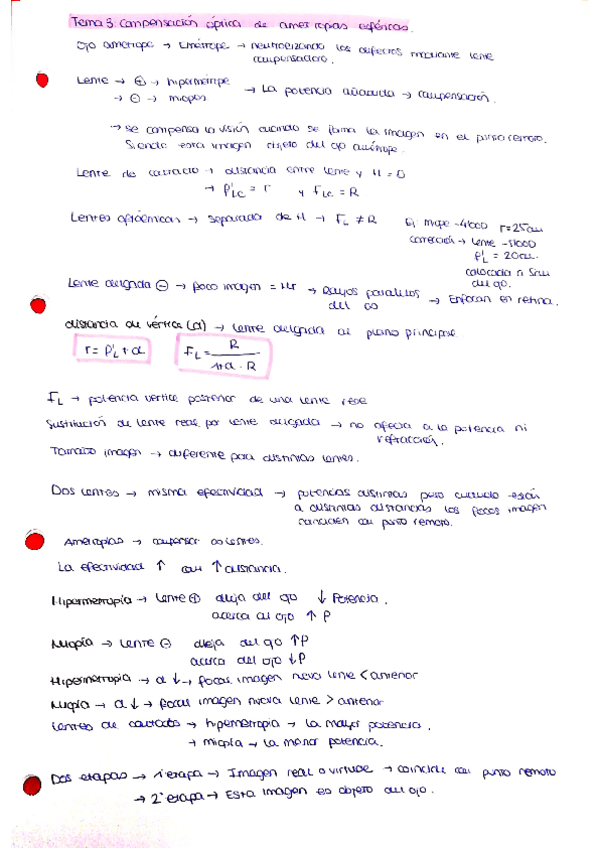 Tema 3: Compensación óptica de ametropías esféricas.
Ojo amétrope → Emétrope → neutralizando los defectos mediante lente
compensadora.
Lente → ⊕ → hipermétrope
→ ⊖ → miopes
→ La potencia adecuada → compensación.
→ se compensa la visión cuando se forma la imagen en el punto remoto.
Siendo esta imagen objeto del ojo amétrope.
Lente de contacto → distancia entre lente y H = 0
→ P'Lc = r y FLc = R
Lentes oftálmicas → separada de H → FL ≠ R
Ej miope -4'00D r=25cm
corrección → lente -5'00D
P'L = 20cm.
colocada a 5cm
del ojo.
Lente delgada ⊖ → foco imagen = Hr → Rayos paralelos
del ∞
→ Enfocan en retina.
distancia de vértice (d) → lente delgada al plano principal
r = P'L + d
FL = R / 1+d · R
FL → potencia vértice posterior de una lente real
Sustitución de lente real por lente delgada → no afecta a la potencia ni
refracción.
Tamaño imagen → diferente para distintas lentes.
Dos lentes → misma efectividad → potencias distintas pero cuando están
a distintas distancias los focos imagen
coinciden con punto remoto.
Ametropías → compensar lentes.
La efectividad ↑ con ↑ distancia.
Hipermetropía → Lente ⊕ aleja del ojo ↓ Potencia.
acerca al ojo ↑ P
Miopía → Lente ⊖ aleja del ojo ↑P
acerca del ojo ↓P
Hipermetropía → d ↓ → focal imagen nueva lente < anterior
Miopía → d ↓ → focal imagen nueva lente > anterior
Lentes de contacto → hipermetropía → la mayor potencia.
→ miopía → la menor potencia.
Dos etapas → 1ª etapa → Imagen real o virtual → coincide con punto remoto
→ 2ª etapa → Esta imagen es objeto del ojo.